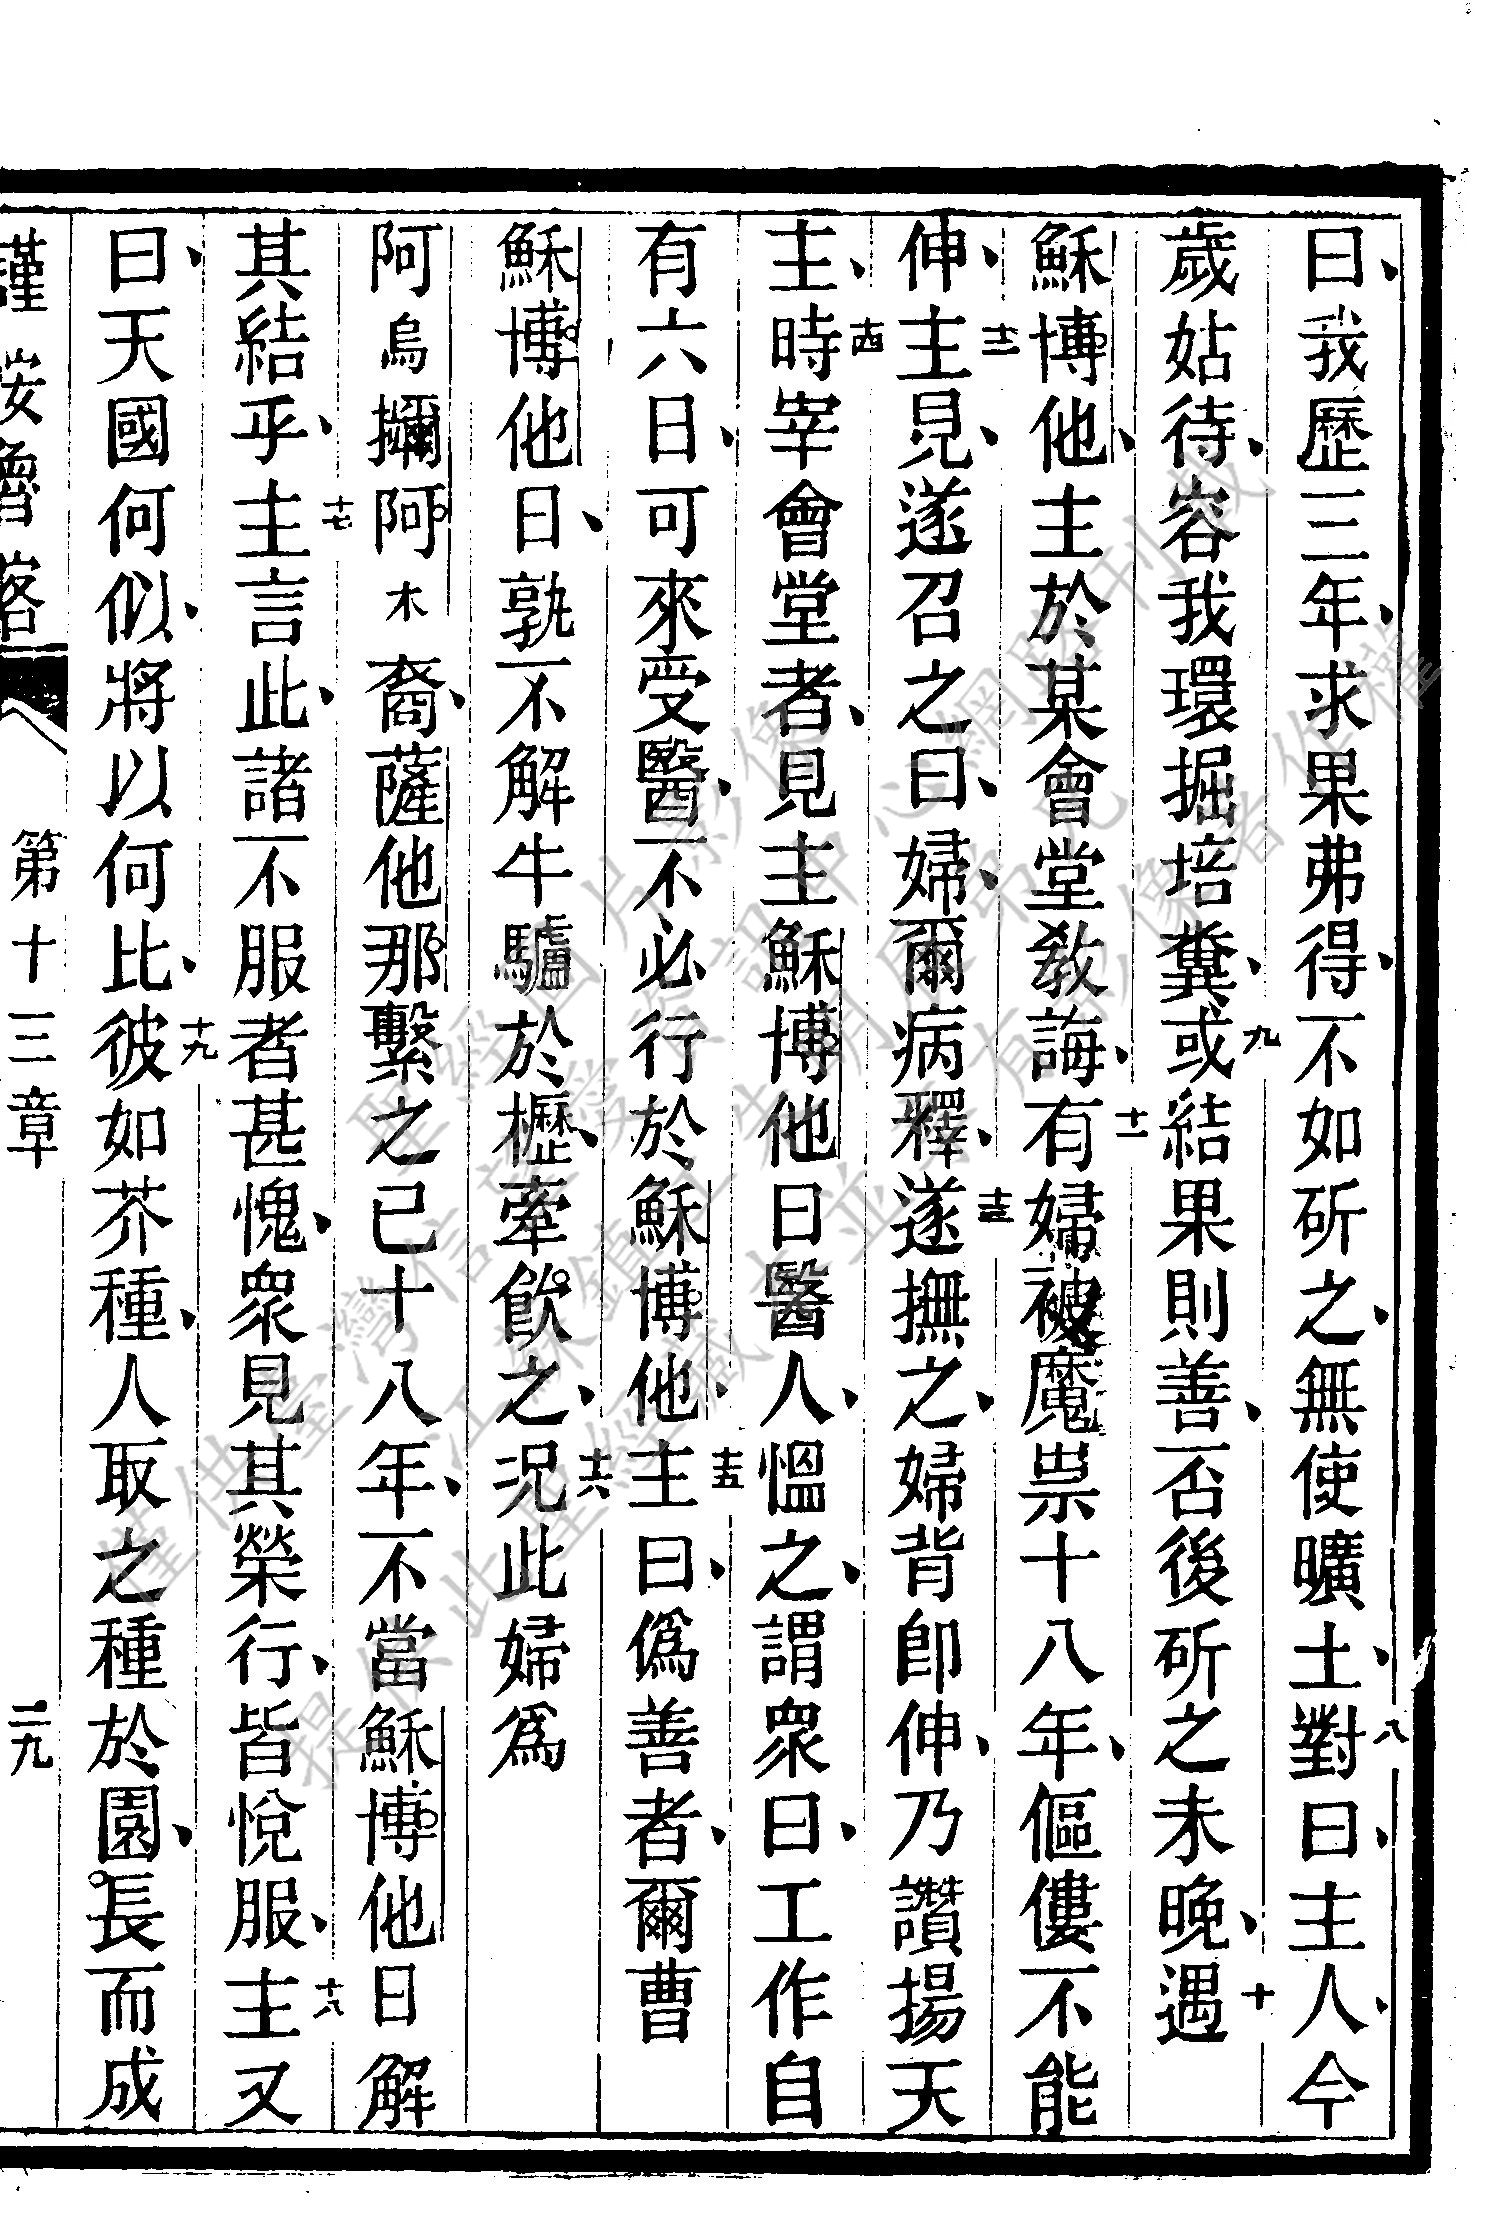 曰、我歷三年、求果弗得、不如斫之、無使曠土、八對曰、主人、今
歲姑待、容我環掘培糞、九或結果則善、否後斫之未晚、十遇
穌博他、主於某會堂教誨、十一有婦被魔祟十八年、傴僂不能
伸、十二主見、遂召之曰、婦、爾病釋、十三遂撫之、婦背卽伸、乃讚揚天
主、十四時宰會堂者、見主穌博他日醫人、慍之、謂衆曰、工作自
有六日、可來受醫、不必行於穌博他、十五主曰、僞善者、爾曹
穌博他日、孰不解牛驢於櫪、牽飲之、十六況此婦爲
阿烏擟阿木裔、薩他那繫之已十八年、不當穌博他日解
其結乎、十七主言此、諸不服者甚愧、衆見其榮行、皆悅服、十八主又
曰、天國何似、將以何比、十九彼如芥種、人取之種於園、長而成
第十三章 二九